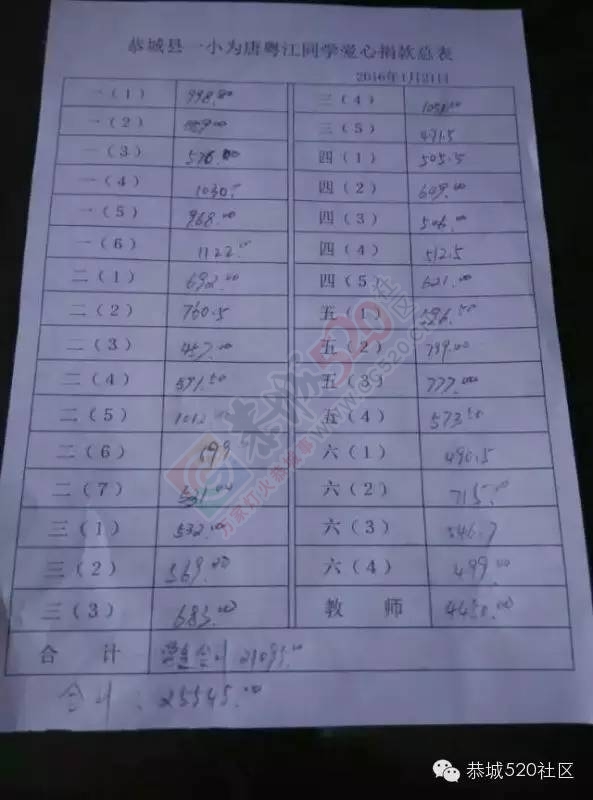 恭城县一小为唐粤江同学爱心捐款总表
2016年1月21日
一(1) 998.80 三(4)
一(2) 三(5) 471.5
一(3) 576.00 四(1) 505.5
一(4) 1030. 四(2) 609.00
一(5) 968.00 四(3) 506.00
一(6) 1122. 四(4) 512.5
二(1) 692.00 四(5) 621.00
二(2) 760.5 五(1) 596.50
二(3) 457.00 五(2) 799.00
二(4) 591.50 五(3) 777.00
二(5) 1012.00 五(4) 573.50
二(6) 699 六(1) 490.5
二(7) 531.00 六(2) 715.
三(1) 532.00 六(3) 546.7
三(2) 569.00 六(4) 499.00
三(3) 683.00 教师 4450.00
合计 学生合计 21095.00
合计:25545.00
恭城520社区
WWW.GC520.CN
万家灯火恭城事
恭城520社区